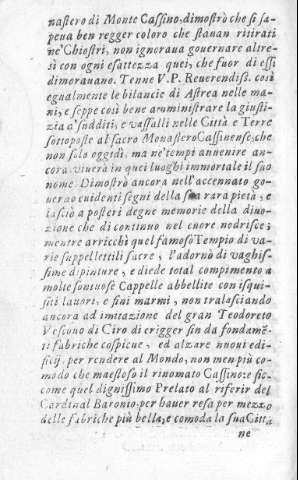 nastero di Monte Cassino, dimostrò che si sa-
peua ben regger coloro che stauan ritirati
ne' Chiostri, non ignoraua gouernare altre-
sì con ogni esattezza quei, che fuor di essi
dimorauano. Tenne V.P. Reuerendiss. così
egualmente le bilancie di Astrea nelle ma-
ni, e seppe così bene amministrare la giusti-
zia a' sudditi, e vassalli nelle Città e Terre
sottoposte al sacro Monastero Cassinense, che
non solo oggidì, ma ne' tempi auuenire an-
cora viuerà in quei luoghi immortale il suo
nome. Dimostrò ancora nell'accennato go-
uerno euidenti segni della sua rara pietà, e
lasciò a posteri degne memorie della diuo-
zione che di continuo nel cuore nodrisce;
mentre arricchì quel famoso Tempio di va-
rie suppellettili sacre, l'adornò di vaghis-
sime dipinture, e diede total compimento a
molte sontuose Cappelle abbellite con isqui-
siti lauori, e fini marmi, non tralasciando
ancora ad imitazione del gran Teodoreto
Vescouo di Ciro di erigger sin da fondamē-
ti fabriche cospicue, ed alzare nuoui edi-
ficij, per rendere al Mondo, non men più co-
modo che maestoso il rinomato Cassino: e sic-
come quel dignissimo Prelato al riferir del
Cardinal Baronio per hauer resa per mezzo
delle fabriche più bella, e comoda la sua Città
ne